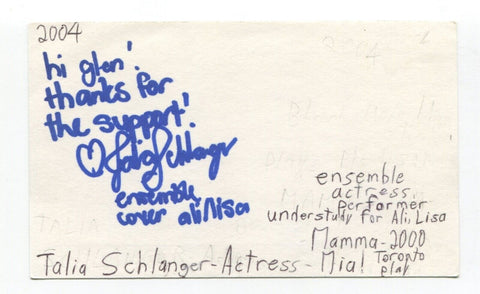 2004
hi glen!
thanks for
the support!
♡ Talia Schlanger
ensemble
cover ali/lisa
ensemble
actress
performer
understudy for Ali, Lisa
Mamma-2000
Talia Schlanger-Actress-Mia! Toronto
play